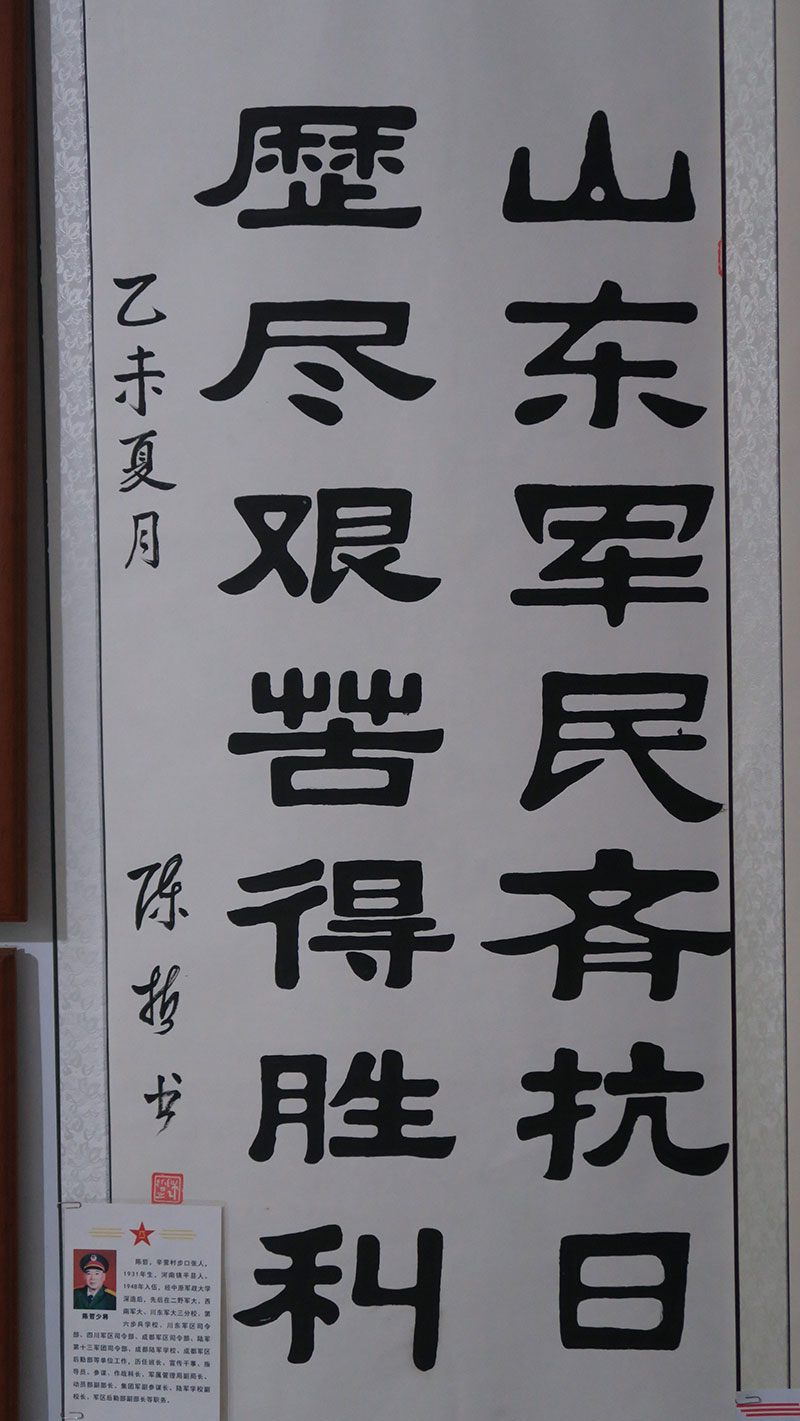 山东军民斉抗日
歷尽艰苦得胜利
乙未夏月
陈哲书
陈哲少将
陈哲，辛营村步口张人，
1931年生，河南镇平县人。
1948年入伍，经中原军政大学
深造后，先后在二野军大、西
南军大、川东军大三分校、第
六步兵学校、川东军区司令
部、四川军区司令部、成都军区司令部、陆军
第十三军团司令部、成都陆军学校、成都军区
后勤部等单位工作，历任班长、宣传干事、指
导员、参谋、作战科长、军属管理局副局长、
动员部副部长、集团军副参谋长、陆军学校副
校长、军区后勤部副部长等职务。